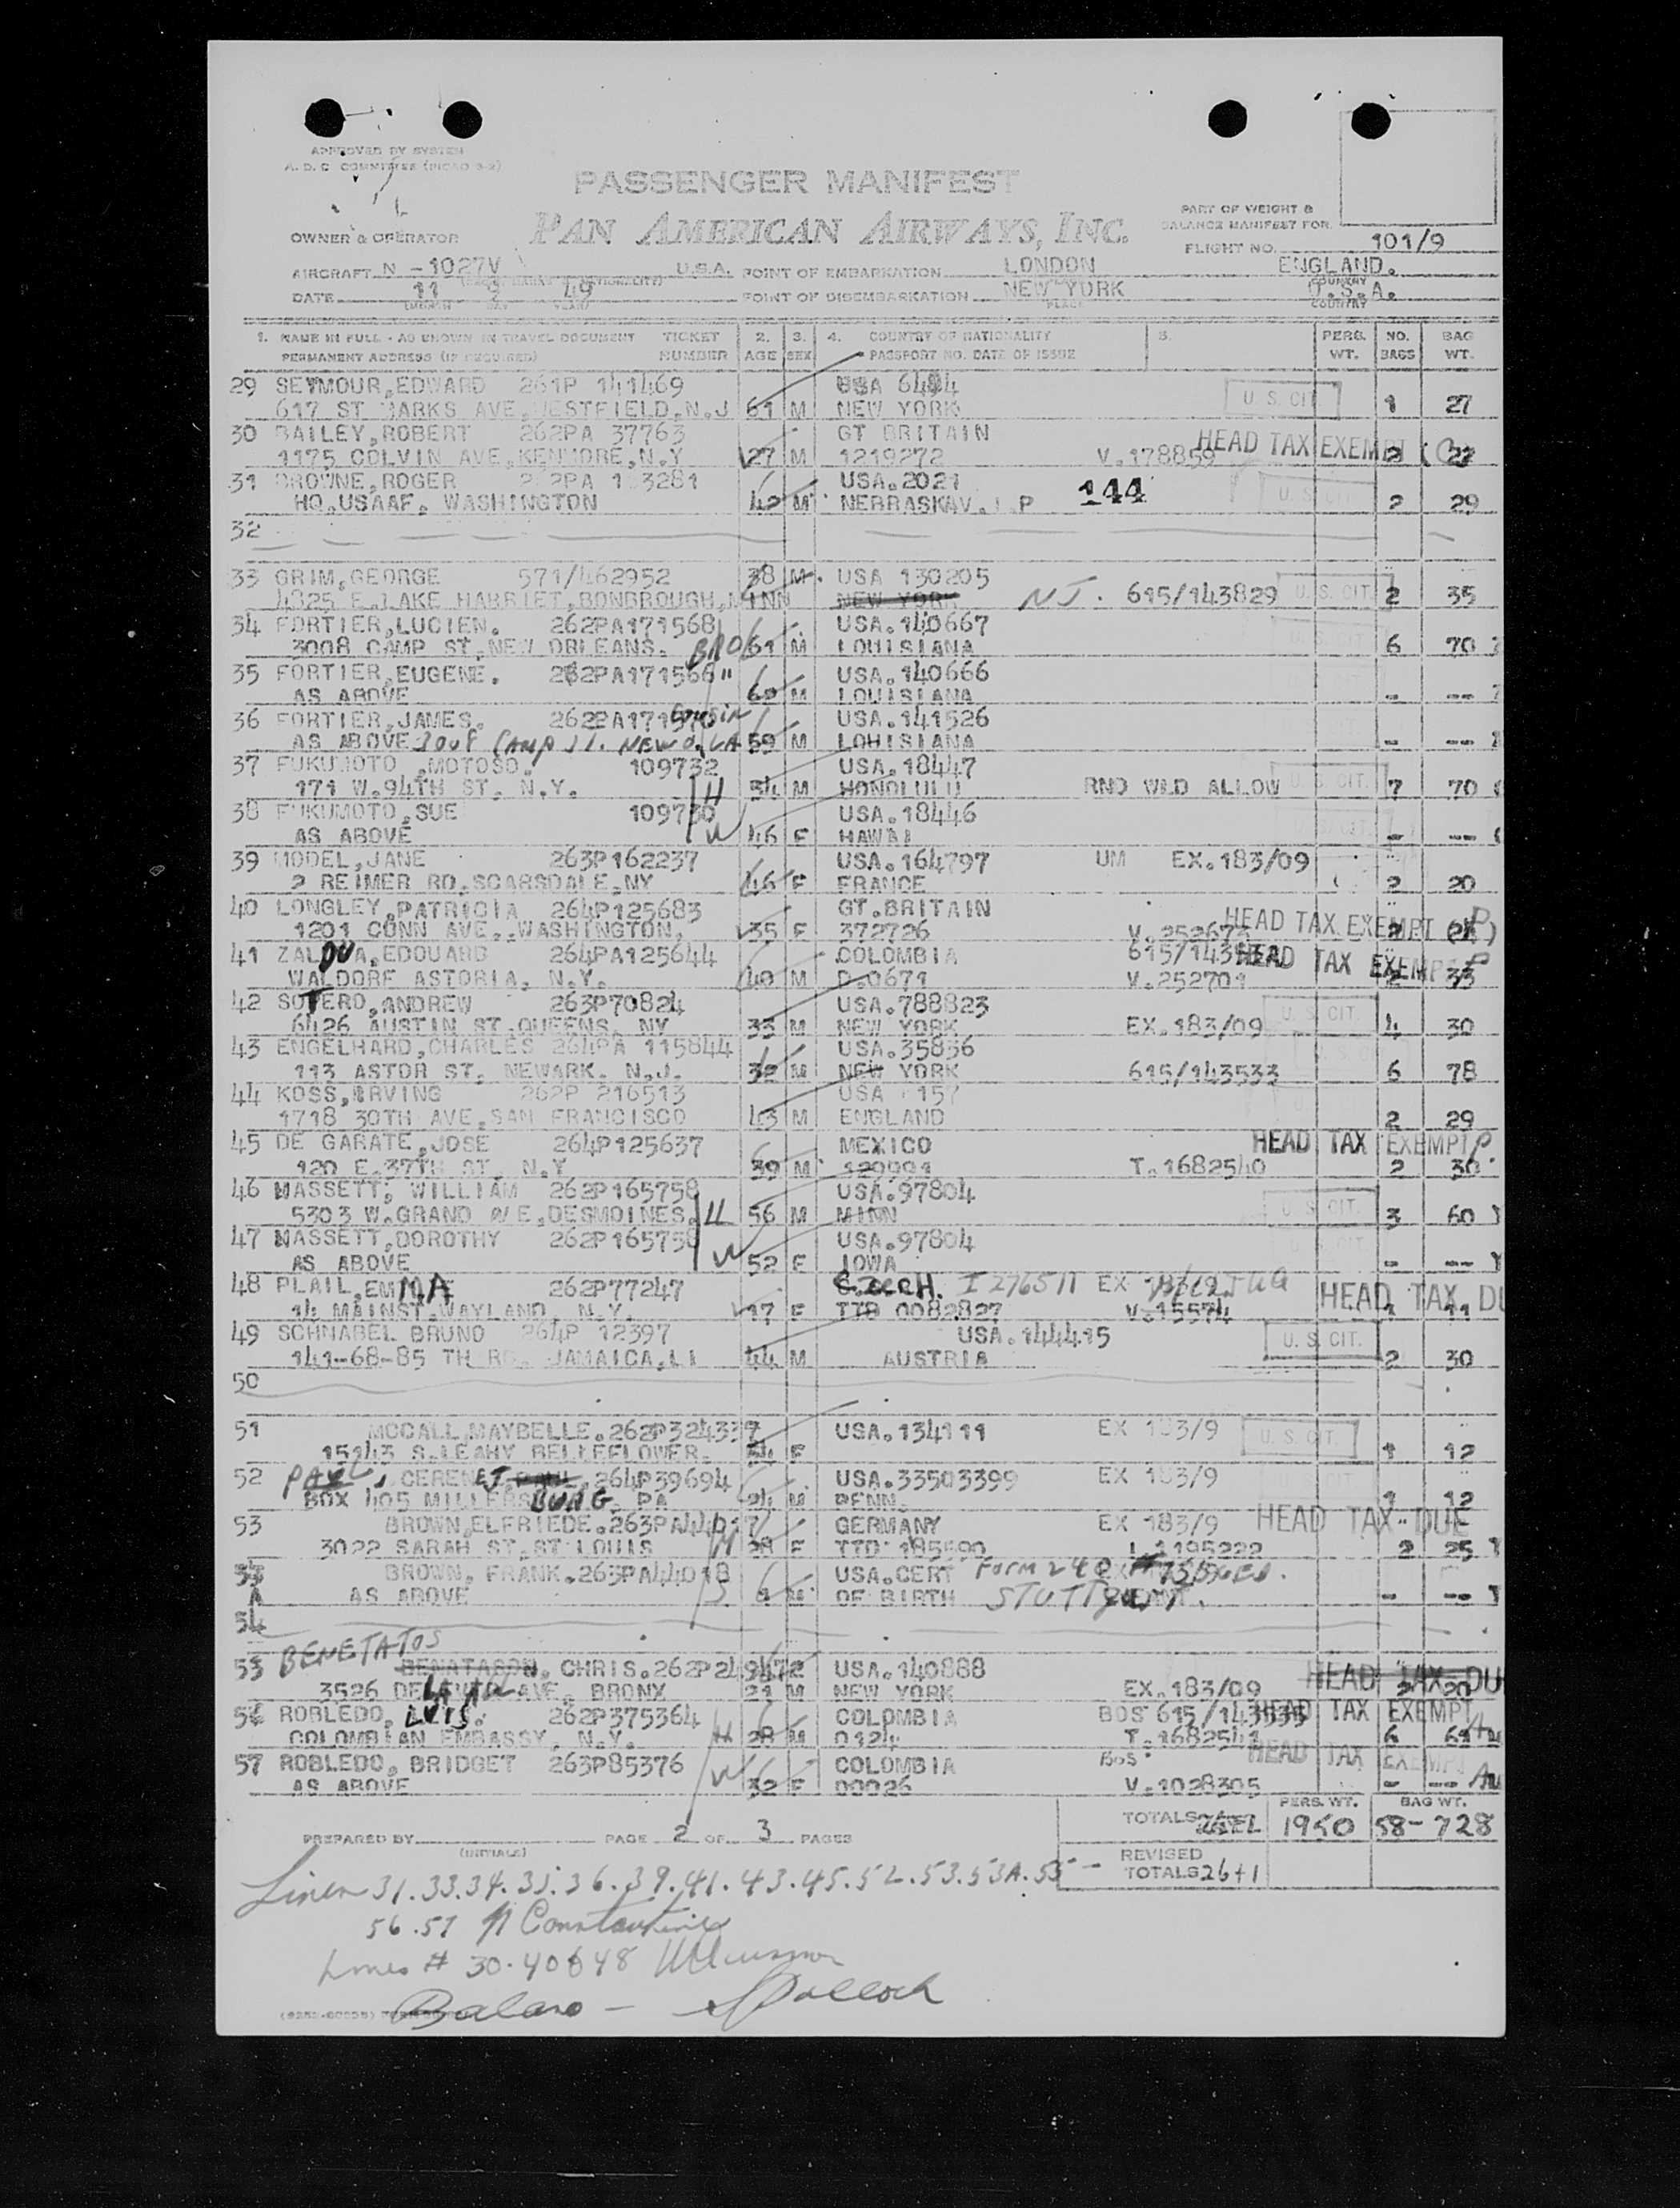 APPROVED BY SYSTEM
A. D. C COMMITTEE
PASSENGER MANIFEST
PAN AMERICAN AIRWAYS, INC.
OWNER & OPERATOR
PART OF WEIGHT &
BALANCE MANIFEST FOR
FLIGHT NO. 101/9
AIRCRAFT N -1027V U.S.A. POINT OF EMBARKATION LONDON ENGLAND.
DATE 11 9 49 POINT OF DISEMBARKATION NEW YORK U.S.A.
(MONTH DAY YEAR) PLACE COUNTRY
1. NAME IN FULL - AS SHOWN IN TRAVEL DOCUMENT TICKET 2. 3. 4. COUNTRY OF NATIONALITY 5. PERS. NO. BAG
PERMANENT ADDRESS (IF REQUIRED) NUMBER AGE SEX PASSPORT NO. DATE OF ISSUE WT. BAGS WT.
29 SEYMOUR,EDWARD 261P 141469 USA
617 ST MARKS AVE,WESTFIELD,N.J 61 M NEW YORK U.S.CIT. 1 27
30 BAILEY,ROBERT 262PA 37763 GT BRITAIN HEAD TAX EXEMPT
1175 COLVIN AVE,KENMORE,N.Y 27 M 1219272 V.178859 2
31 BROWNE,ROGER USA.2021 144
HQ.USAAF. WASHINGTON 42 M NEBRASKA U.S.CIT. 2 29
32
33 GRIM,GEORGE 571/462952 38 M USA 130205
4825 E.LAKE HARRIET,BONBROUGH,MINN NEW YORK NJ. 615/143829 U.S.CIT. 2 35
34 FORTIER,LUCIEN. 262PA171568 USA.140667
3008 CAMP ST.NEW ORLEANS. BRO 61 M LOUISIANA 6 70
35 FORTIER,EUGENE. 262PA171566 " USA.140666
AS ABOVE M LOUISIANA - --
36 FORTIER,JAMES. COUSIN USA.141526
AS ABOVE 3008 CAMP ST. NEW O. LA 59 M LOUISIANA - --
37 FUKUMOTO ,MOTOSO. 109732 USA.18447
171 W.94TH ST. N.Y. H 54 M HONOLULU RND WLD ALLOW U.S.CIT. 7 70
38 FUKUMOTO,SUE 109730 USA.18446
AS ABOVE W 46 F HAWAI - --
39 MODEL,JANE 263P162237 USA.164797 UM EX.183/09
2 REIMER RD.SCARSDALE,NY 46 F FRANCE 2 20
40 LONGLEY,PATRICIA 264P125683 GT.BRITAIN HEAD TAX EXEMPT (P)
1201 CONN AVE.,WASHINGTON. 35 F 372726 V.252673 2
41 ZALDUA,EDOUARD 264PA125644 COLOMBIA HEAD TAX EXEMPT P
WALDORF ASTORIA. N.Y. 40 M D.0671 V.252701 2 33
42 SOTERO,ANDREW 263P70824 USA.788823
6426 AUSTIN ST.QUEENS. NY 33 M NEW YORK EX.183/09 U.S.CIT. 4 30
43 ENGELHARD,CHARLES 264PA 115844 USA.35836
113 ASTOR ST. NEWARK. N.J. 32 M NEW YORK 615/143533 6 78
44 KOSS,IRVING 262P 216513 USA 157
1718 30TH AVE,SAN FRANCISCO 43 M ENGLAND 2 29
45 DE GARATE,JOSE 264P125637 MEXICO HEAD TAX EXEMPT P.
120 E.37TH ST. N.Y 39 M 120991 T.1682540 2 30
46 MASSETT, WILLIAM 262P165758 USA.97804
5303 W.GRAND AVE.DESMOINES. H 56 M MINN U.S.CIT. 3 60
47 MASSETT,DOROTHY 262P165758 USA.97804
AS ABOVE W 52 F IOWA - --
48 PLAIL,EMMA 262P77247 CZECH. EX HEAD TAX DU
14 MAINST.WAYLAND. N.Y. 17 F TTD 0082827 V.15574 1 11
49 SCHNABEL BRUNO 264P 12397 USA.144415
141-68-85 TH RD. JAMAICA,LI 44 M AUSTRIA U.S.CIT. 2 30
50
51 MCCALL,MAYBELLE.262P324337 USA.134911 EX 183/9
15143 S.LEAHY BELLEFLOWER. 54 F U.S.CIT. 1 12
52 PAUL, CERENE 264P39694 USA.33503399 EX 183/9
BOX 405 MILLERSBURG. PA 24 M PENN. 1 12
53 BROWN,ELFRIEDE. GERMANY EX 183/9 HEAD TAX DUE
3022 SARAH ST.ST LOUIS M 28 F TTD I.1195222 2 25
53 A BROWN, FRANK.263PA44018 USA.CERT FORM 240
AS ABOVE S M OF BIRTH STUTTGART. - --
54
BENETATOS
53 CHRIS. USA.140888 HEAD TAX DU
3526 AVE. BRONX 21 M NEW YORK EX.183/09 2 20
56 ROBLEDO, LUIS. 262P375364 COLOMBIA BOS 615/143535 HEAD TAX EXEMPT
COLOMBIAN EMBASSY, N.Y. H 28 M D124 T.1682541 6
57 ROBLEDO, BRIDGET 263P85376 COLOMBIA BOS HEAD TAX EXEMPT
AS ABOVE W 32 F D0026 V.1028305 - --
PERS. WT. BAG WT.
TOTALS 1950 58-728
PREPARED BY PAGE 2 OF 3 PAGES
(INITIALS)
REVISED
TOTALS 26+1
Lines 31.33.34.35.36.39.41.43.45.52.53.53A.55-
56.57
Lines # 30.40 & 48